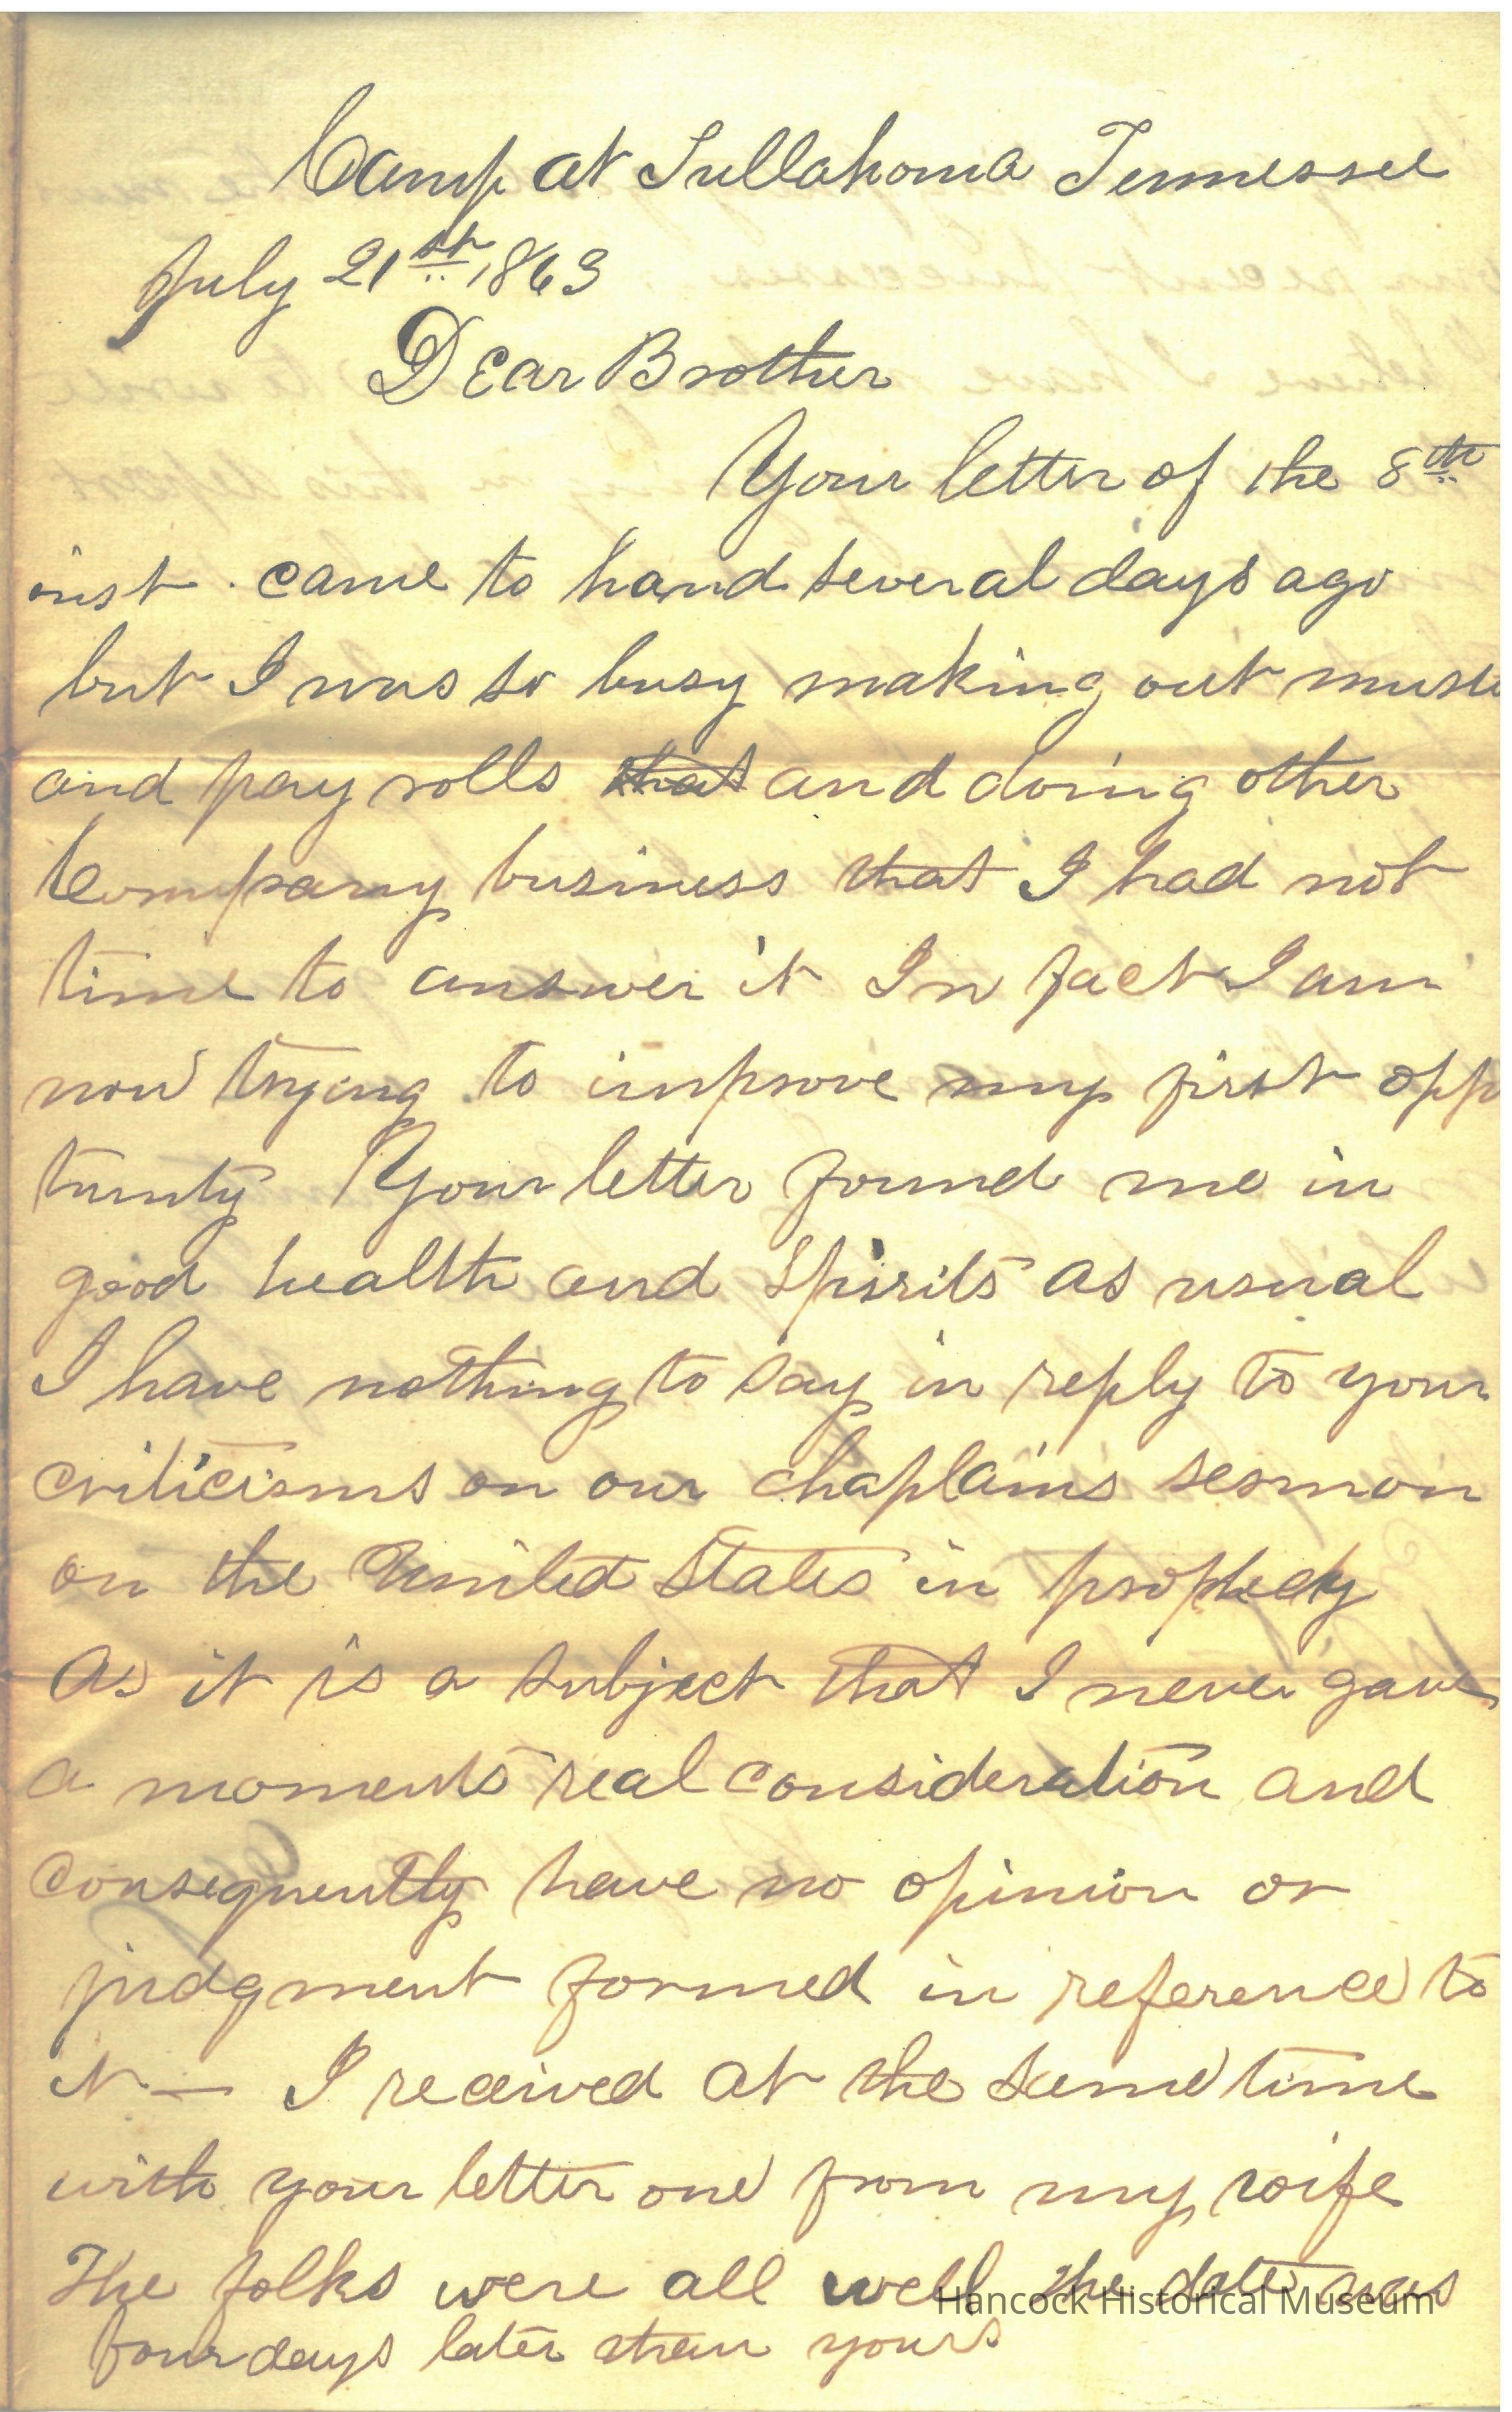 Camp at Tullahoma Tennessee
July 21st 1863
Dear Brother
Your letter of the 8th
inst. came to hand several days ago
but I was so busy making out muste
and pay rolls that and doing other
Company business that I had not
time to answer it In fact I am
now trying to improve my first oppo
tunity Your letter found me in
good health and spirits as usual
I have nothing to say in reply to your
criticisms on our chaplains sermon
on the United States in prophecy
As it is a subject that I never gave
a moments real consideration and
consequently have no opinion or
judgment formed in reference to
it — I received at the same time
with your letter one from my wife
The folks were all well the date was
four days later than yours
Hancock Historical Museum